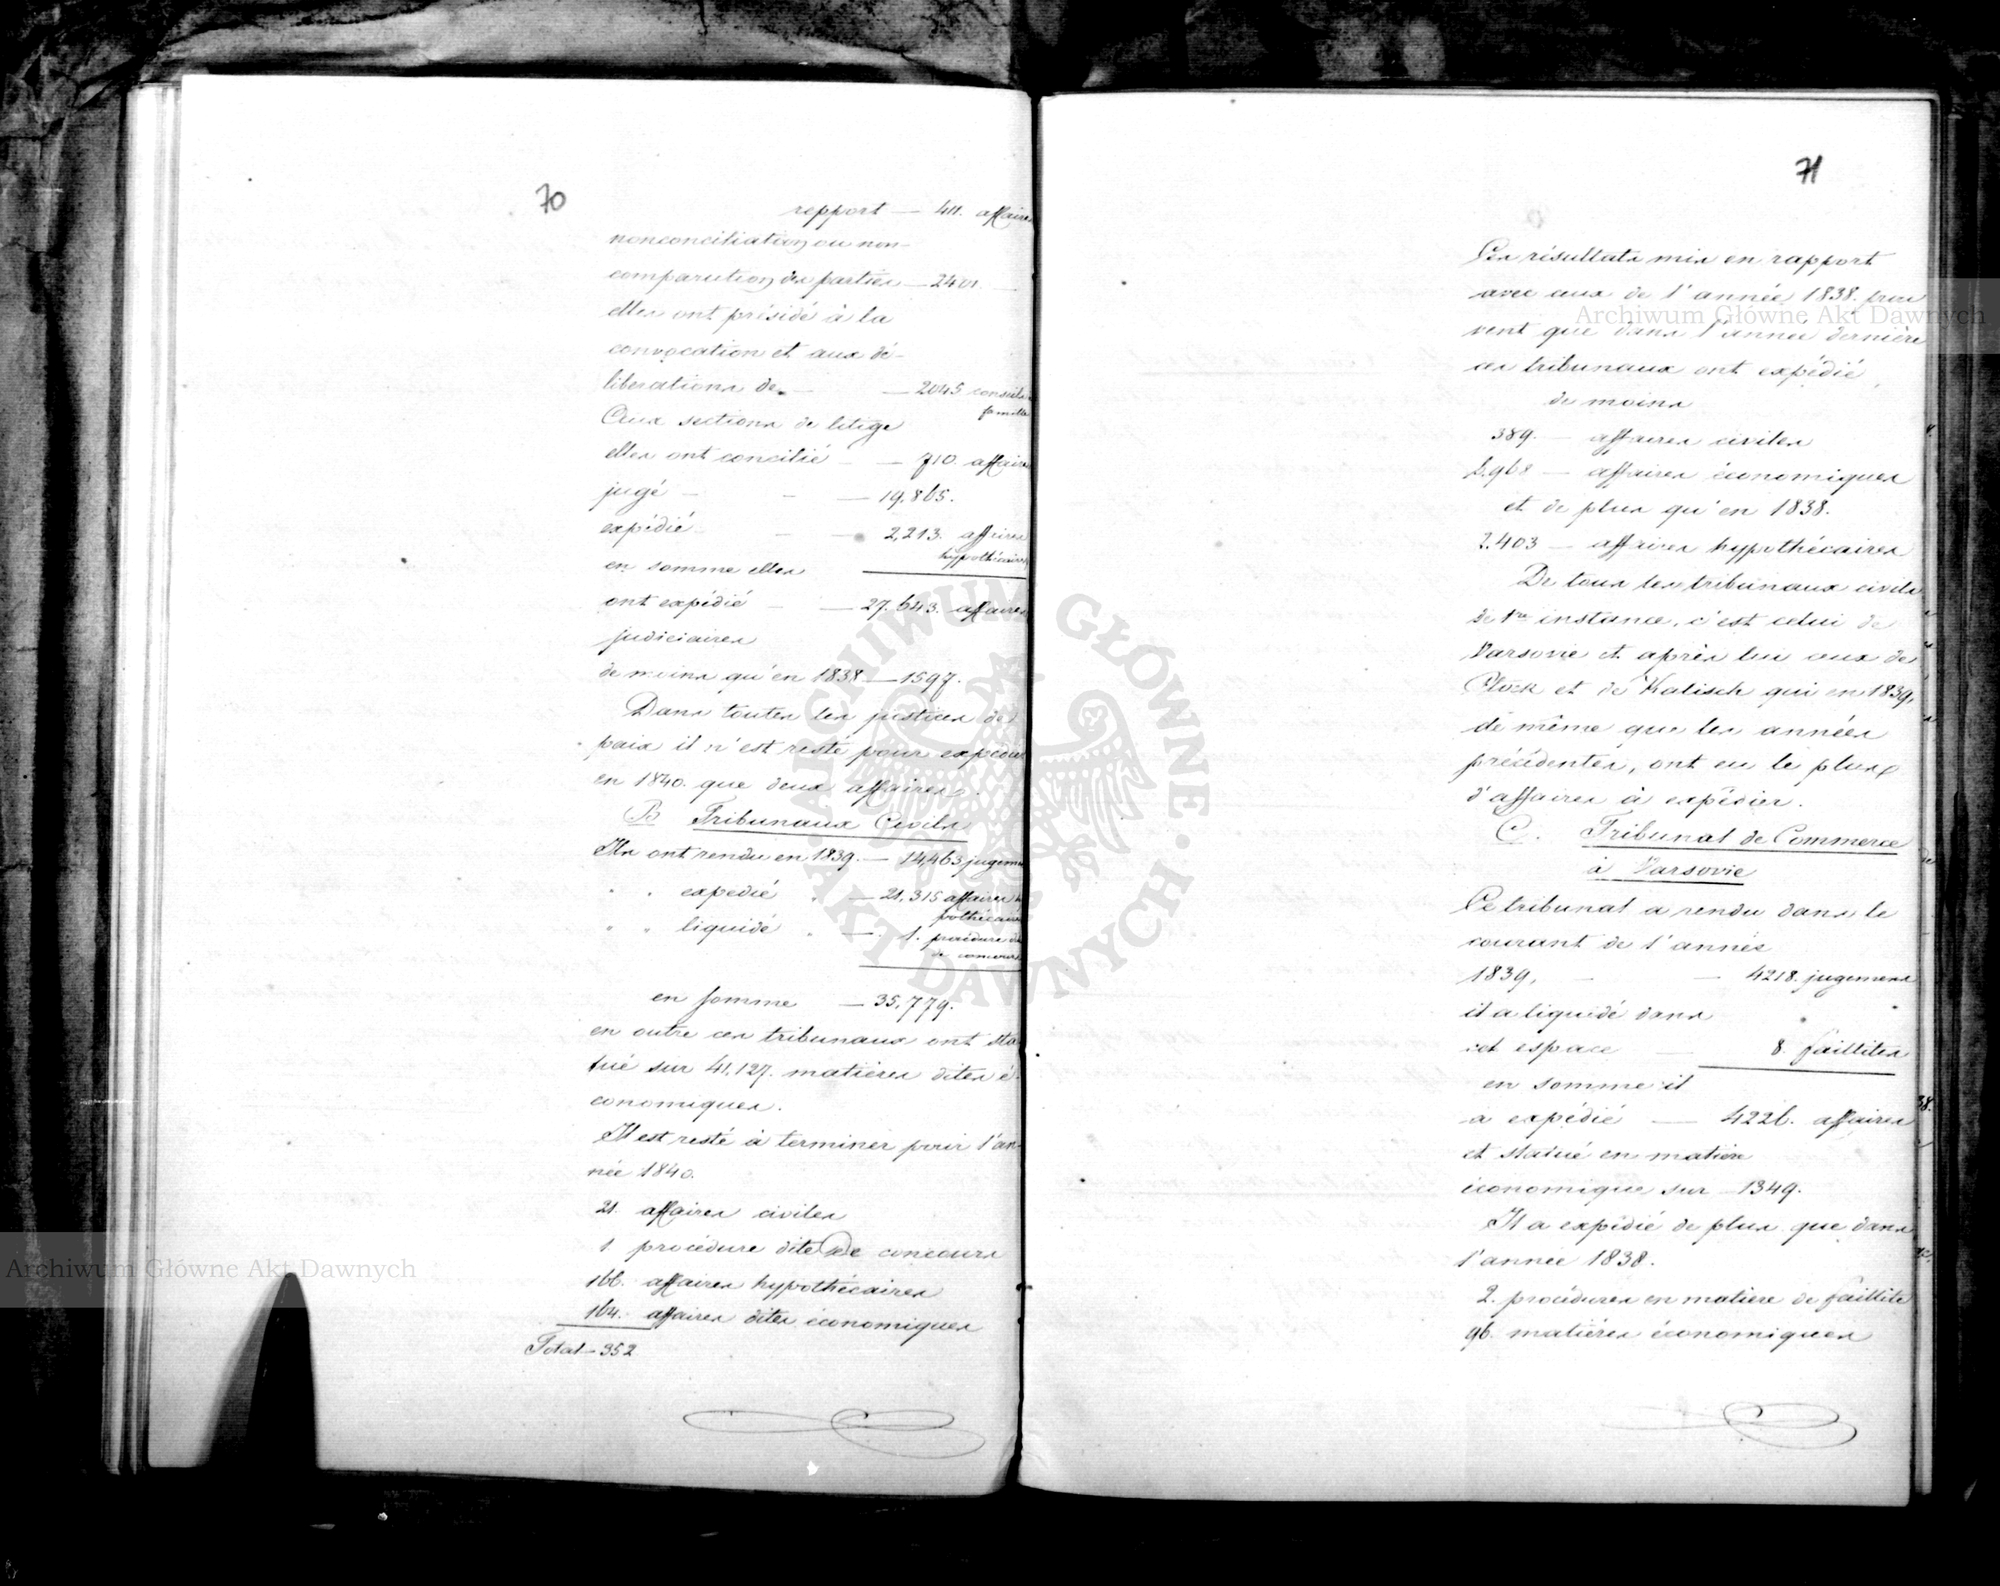 70
repport — 411. affaires
nonconciliation ou non-
comparution des parties — 2401. —
elles ont présidé à la
convocation et aux dé-
liberations de — — 2045 conseils
famille
Ceux sections de litige
elles ont concilié — — 710. affaires
jugé — — — 19,865.
expédié — — 2,213. affaires
hypothécaires
en somme elles
ont expédié — — 27.643. affaires
judiciaires
de moins qu'en 1838 — 1597.
Dans toutes les justices de
paix il n'est resté pour expédier
en 1840. que deux affaires.
B Tribunaux Civils
Ils ont rendu en 1839. — 14,463 jugemens
" " expedié " — 21,315 affaires hy
pothécaires
" " liquidé " — 1. procédure di
de concours
en somme — 35,779.
en outre ces tribunaux ont sta
tué sur 41,127. matières dites é-
conomiques.
Il est resté à terminer pour l'an-
née 1840.
21. affaires civiles
1 procédure dite de concours
166. affaires hypothécaires
164. affaires dites économiques
Total — 352
71
Ces résultats mis en rapport
avec ceux de l'année 1838. prou
vent que dans l'année dernière
ces tribunaux ont expédié
de moins
389. — affaires civiles
affaires économiques
et de plus qu'en 1838.
2.403 — affaires hypothécaires
De tous les tribunaux civils
de 1re instance, c'est celui de
Varsovie et après lui ceux de
Plock et de Kalisch qui en 1839,
de même que les années
précédentes, ont eu le plus
d'affaires à expédier.
C. Tribunal de Commerce
à Varsovie
Ce tribunal a rendu dans le
courant de l'année
1839, — — 4218. jugemens
il a liquidé dans
cet espace — 8. faillites
en somme il
a expédié — 4226. affaires
et statué en matière
économique sur — 1349.
Il a expédié de plus que dans
l'année 1838.
2. procédures en matiere de faillite
96. matiéres économiques
Archiwum Główne Akt Dawnych
Archiwum Główne Akt Dawnych
ARCHIWUM GŁÓWNE AKT DAWNYCH